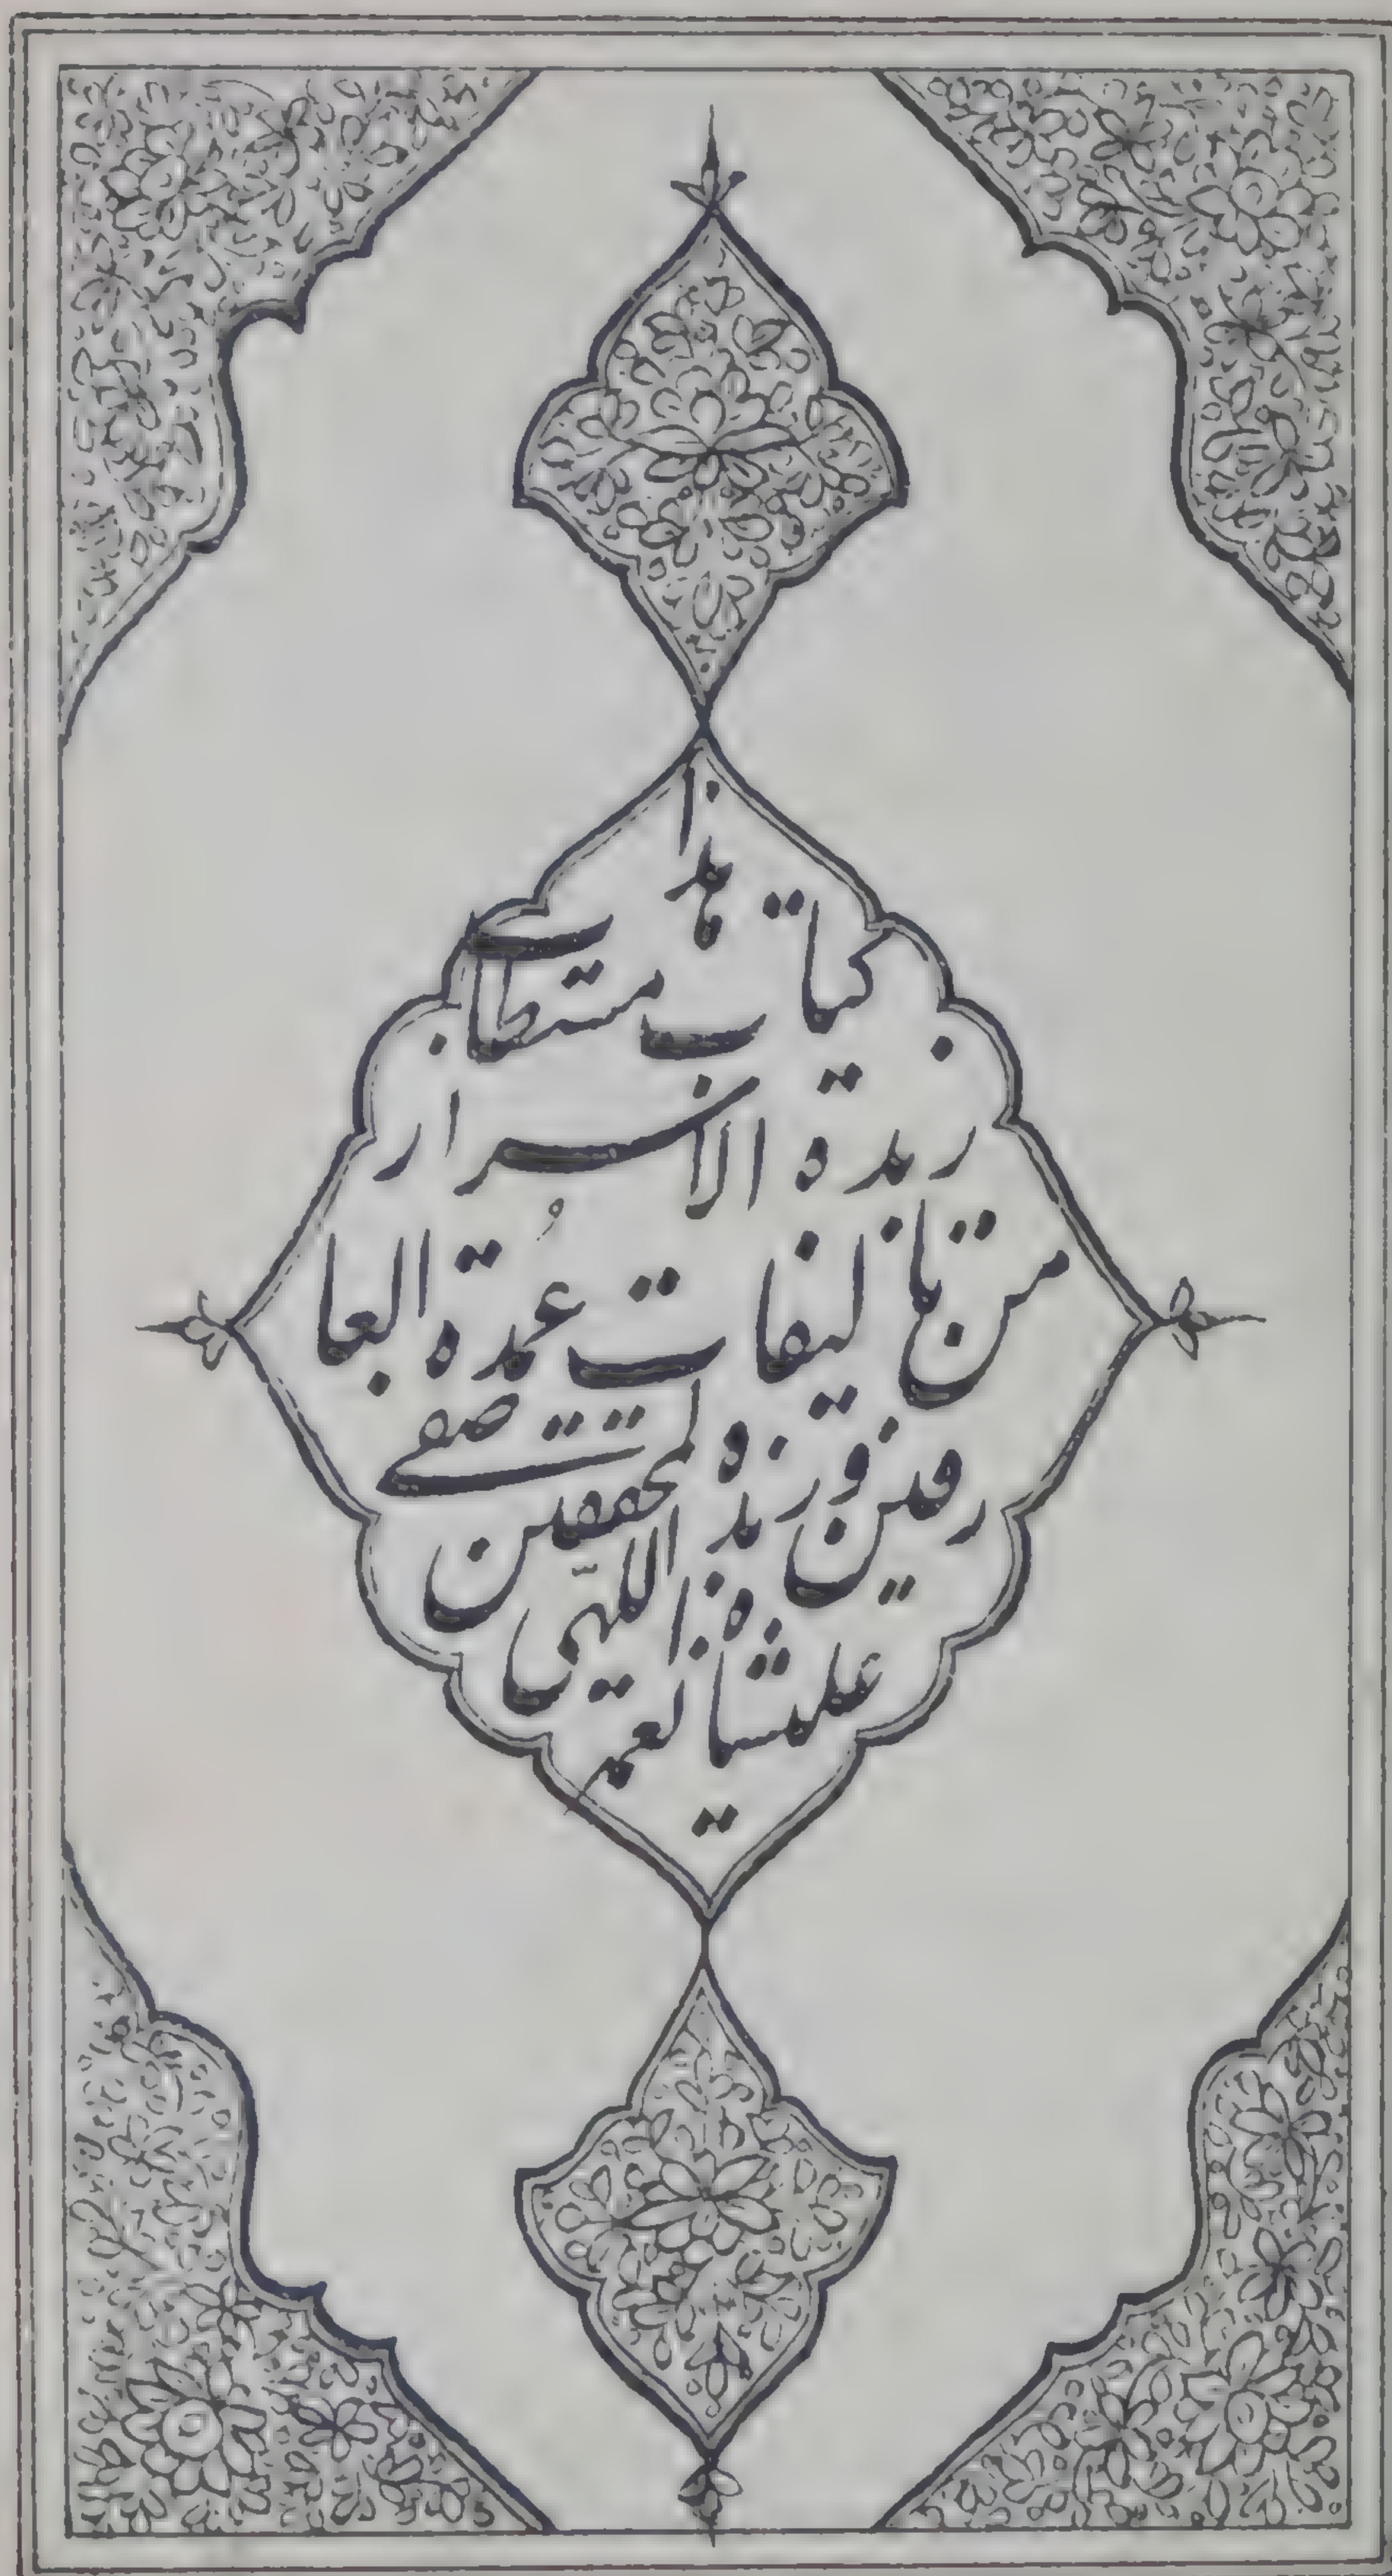 هذا
کتاب مستطاب
زبدة الاسرار
من تألیفات عمدة العا
رفین و زبدة المحققین صفی
علیشاه نعمة اللهی